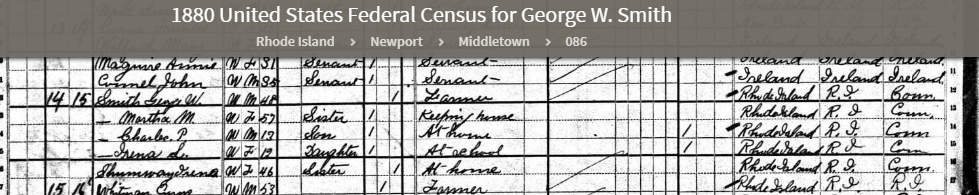 1880 United States Federal Census for George W. Smith
Rhode Island > Newport > Middletown > 086
Maguire Annie W F 31 Servant 1 Servant Ireland Ireland Ireland
Connel John W M 35 Servant 1 Servant Ireland Ireland Ireland 11
14 15 Smith George W. W M 48 1 Farmer Rhode Island R. I. Conn. 12
— Martha M. W F 57 Sister Keeping house Rhode Island R. I. Conn. 13
— Charles P. W M Son At home 1 Rhode Island R. I. Conn 14
— Irena L. W F Daughter At school 1 Rhode Island R. I. Conn 15
Shumway Irena W F 46 Sister 1 At home Rhode Island R. I. Conn.
15 16 Whitman W M 53 1 Farmer Rhode Island R. I. R. I.